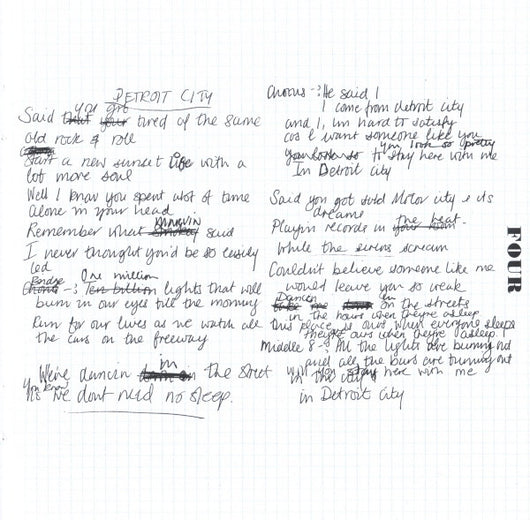 DETROIT CITY
Said you got tired of the same
old rock & roll
Start a new sunset life with a
lot more soul
Well I know you spent alot of time
Alone in your head
Remember what MARVIN said
I never thought you'd be so easily
led
Bridge -: One million lights that will
burn in our eyes till the morning
Run for our lives as we watch all
the cars on the freeway
We're dancin in the street
you know we dont need no sleep.
Chorus -: He said I
I come from detroit city
and I, im hard to satisfy
cos I want someone like you
you look so pretty
to stay here with me
In Detroit city
Said you got sold Motor city & its
dreams
Playin records in the heat.
While the sirens scream
Couldn't believe someone like me
would leave you so weak
Dancin in on the streets
in the hours when theyre asleep
this place is ours when everyone sleeps
ours when theyre asleep.
Middle 8 -: All the lights are burning out
and all the bars are turning out
in the city
will you stay here with me
in Detroit city
FOUR